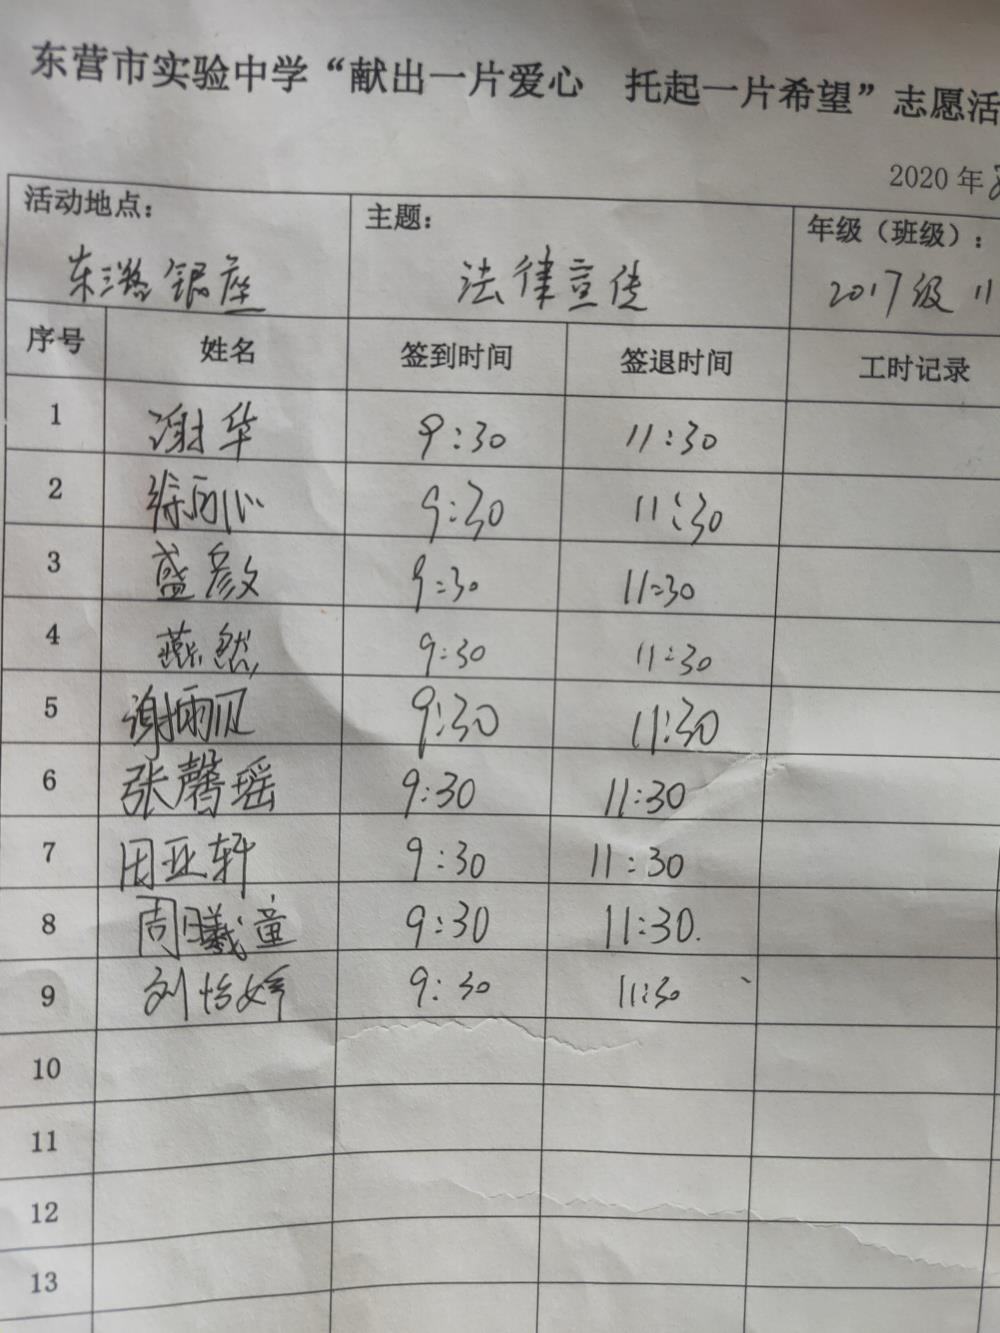 东营市实验中学“献出一片爱心 托起一片希望”志愿活
2020 年
活动地点： 主题： 年级（班级）：
东三路银座 法律宣传 2017级 11
序号 姓名 签到时间 签退时间 工时记录
1 谢华 9:30 11:30
2 徐雨心 9:30 11:30
3 盛彦文 9:30 11:30
4 燕然 9:30 11:30
5 谢雨贝 9:30 11:30
6 张馨瑶 9:30 11:30
7 田亚轩 9:30 11:30
8 周曦童 9:30 11:30.
9 刘怡婷 9:30 11:30
10
11
12
13